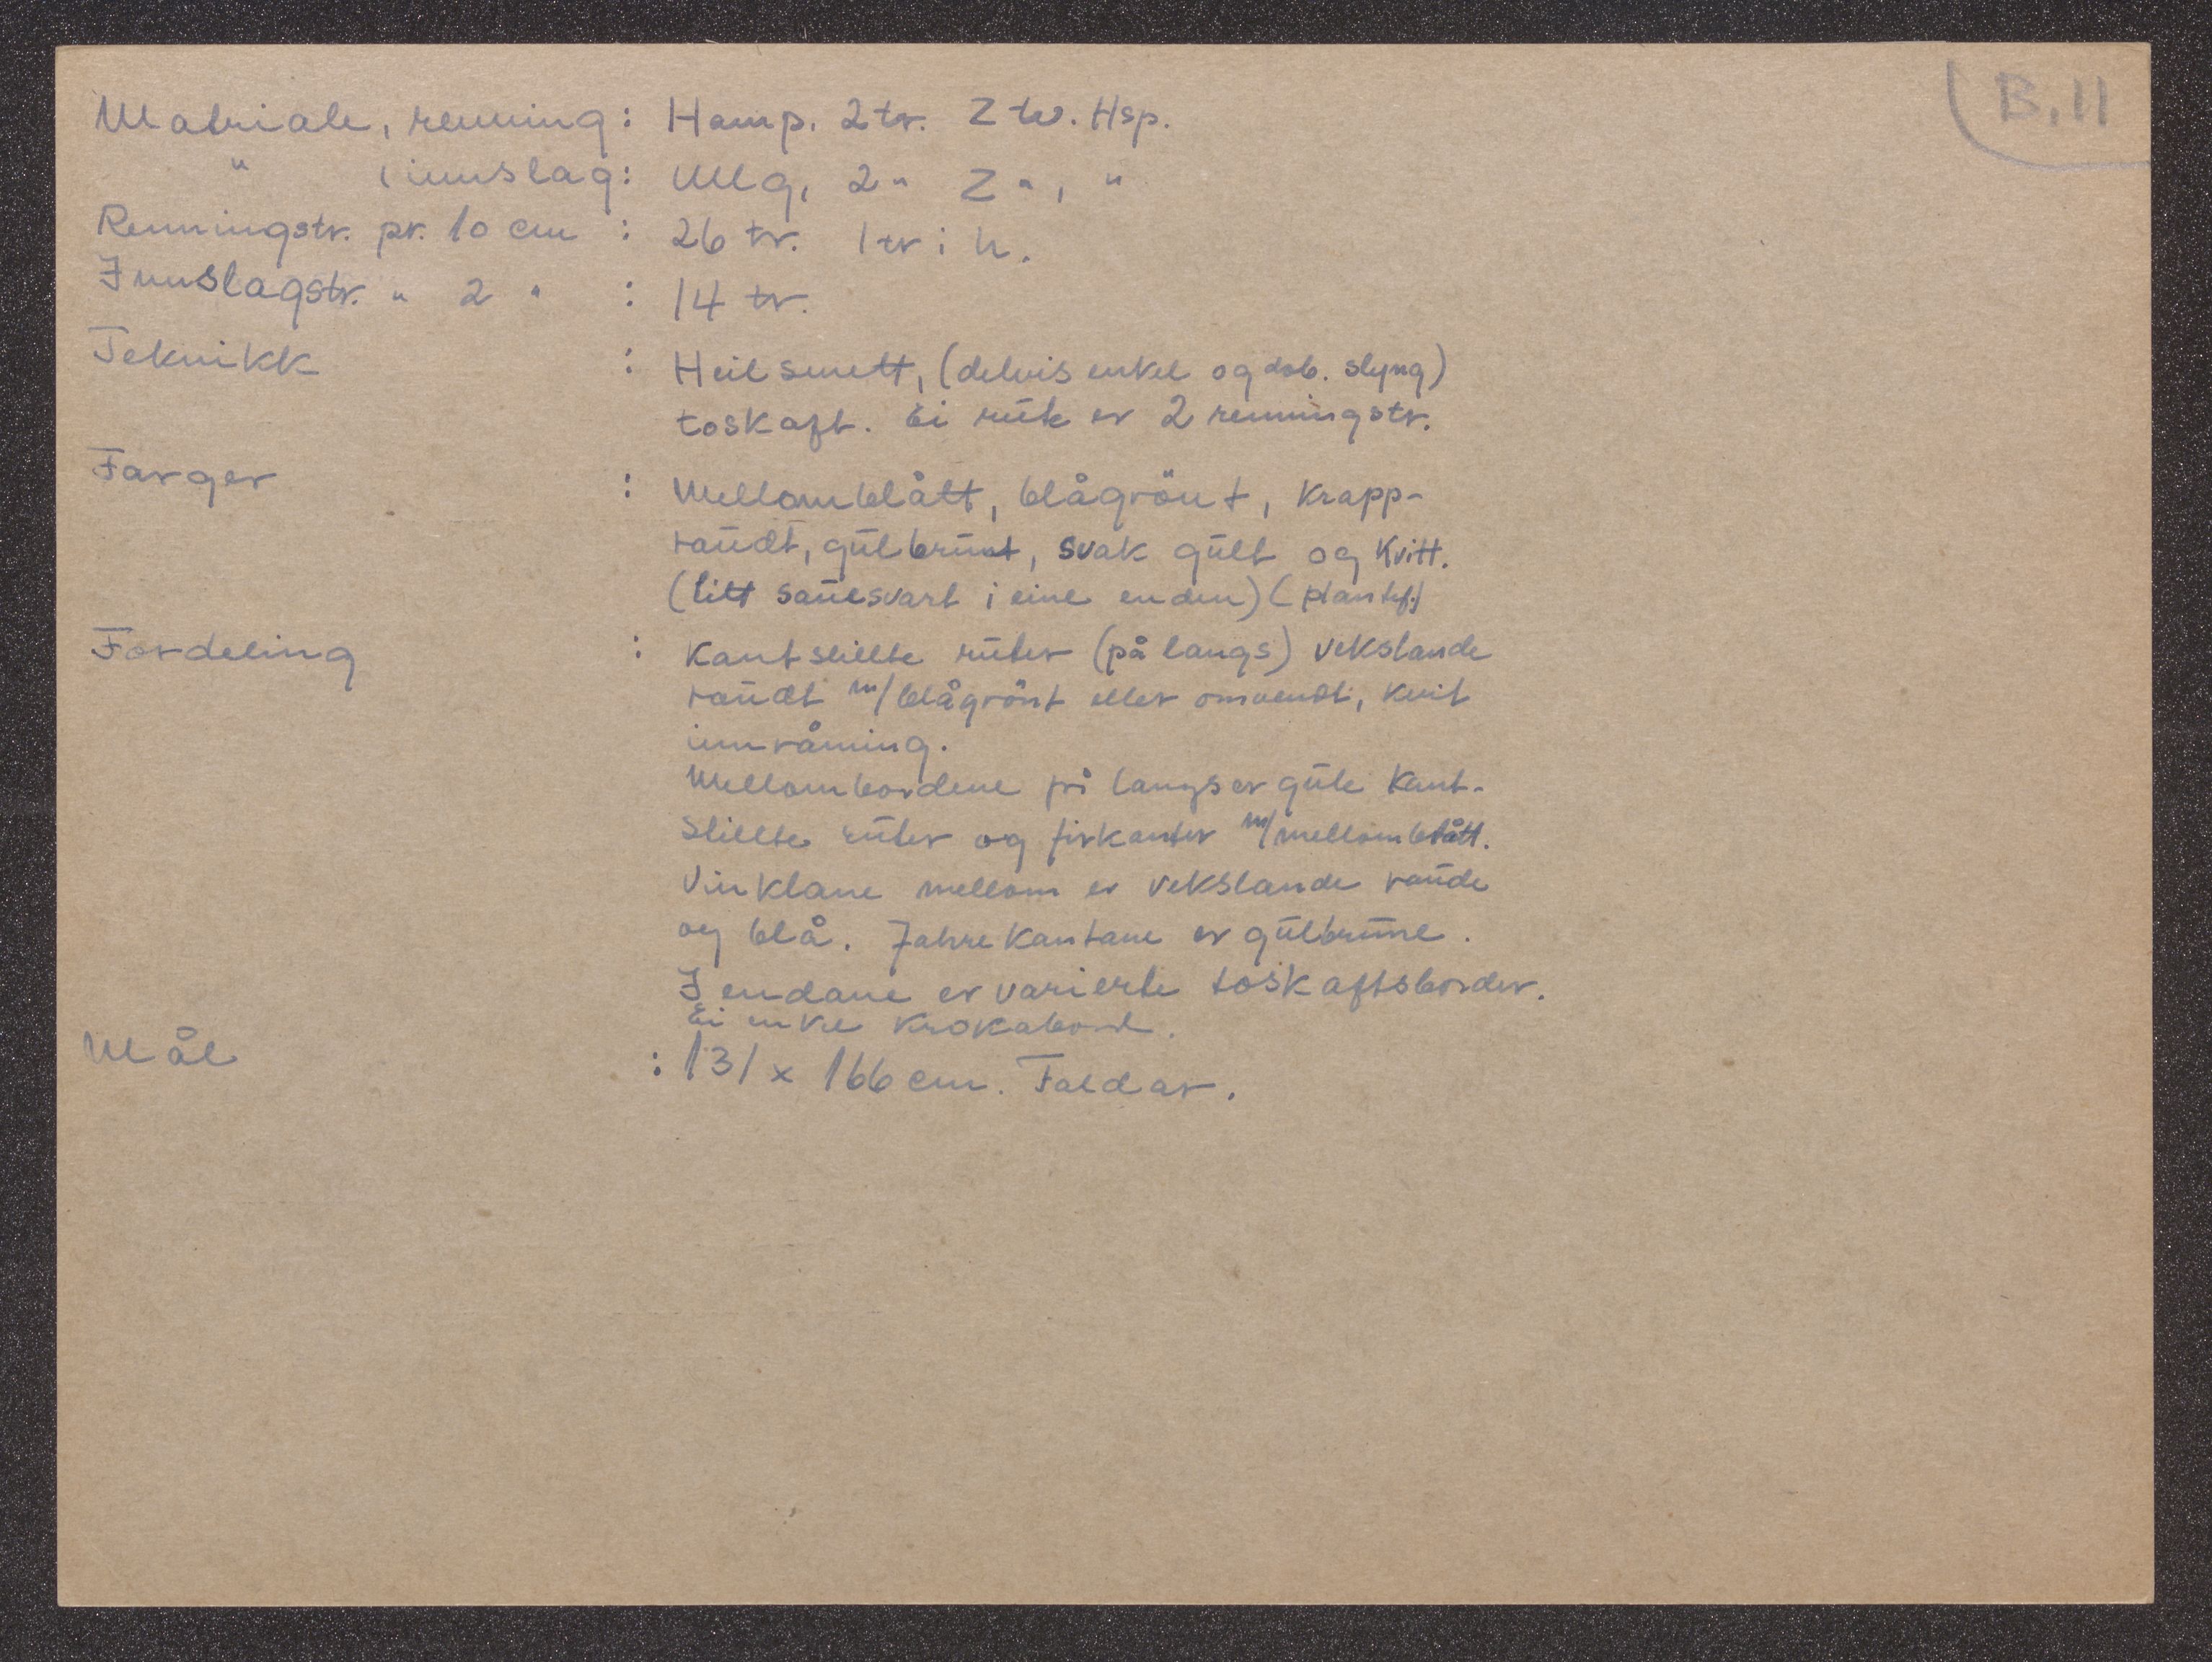 B.11
Matriale, renning: Hamp. 2 tr. Z tv. Hsp.
" , innslag: Ullg, 2 " Z ", "
Renningstr. pr. 10 cm : 26 tr. 1 tr i h.
Innslagstr. " 2 " : 14 tr.
Teknikk : Heilsmett, (delvis enkel og dob. slyng)
toskaft. Ei rute er 2 renningstr.
Farger : Mellomblått, blågrönt, krapp-
raudt, gulbrunt, svak gult og kvitt.
(litt sauesvart i eine enden) (plantef.)
Fordeling : Kantstillte ruter (på langs) vekslande
raudt m/ blågrönt eller omvendt, kvit
innråming.
Mellombordene på langs er gule kant-
stillte ruter og firkanter m/ mellomblått.
Vinklane mellom er vekslande raude
og blå. Jahrekantane er gulbrune.
I endane er varierte toskaftsborder.
Ei enkel krokabord.
Mål : 131 x 166 cm. Faldar.